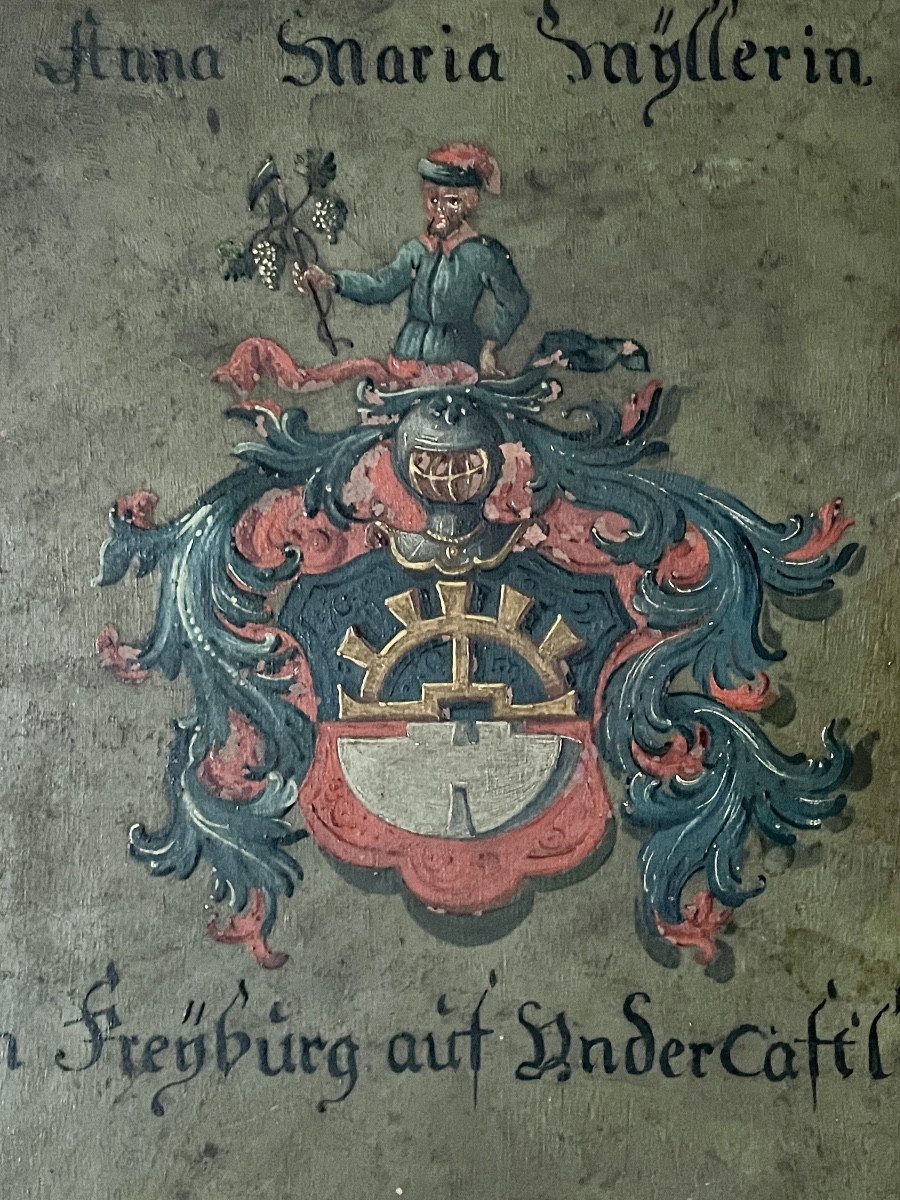 Anna Maria Mÿllerin
n Freÿbürg auf VnderCastl